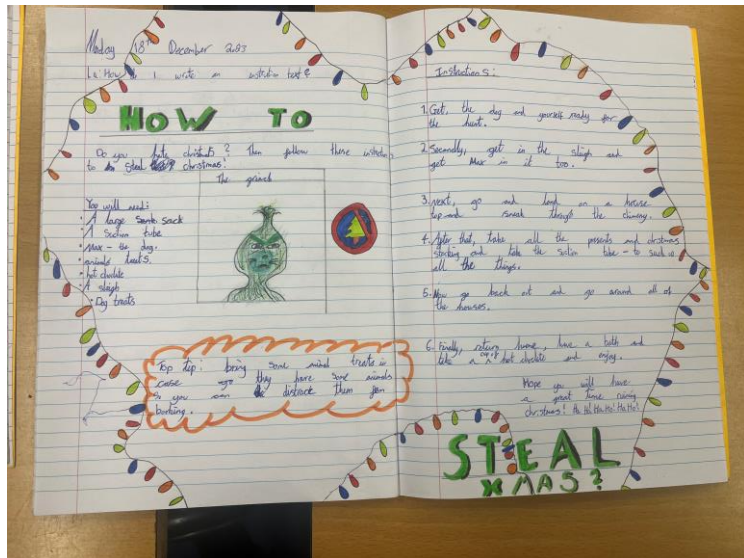 Monday 18th December 2023
La: How do I write an instruction text?
HOW TO
Do you hate christmas? Then follow these instructions
to steal christmas!
The grinch
You will need:
• A large sack
A suction tube
• Max - the dog.
• animals treats.
• hot choclate
• A sleigh
• Dog treats
Top tip: bring some animal treats in
case they have some animals
so you can distrack them from
barking.
Instructions:
1. Get, the dog and yourself ready for
the hunt.
2. Secondly, get in the sleigh and
get Max in it too.
3. Next, go and land on a house
top and sneak through the chimny.
4. After that, take all the presents and christmas
stocking and take the suction tube - to suck up
all the things.
5. Now go back out and go around all of
the houses.
6. Finally, return home, have a bath and
take a cup of hot choclate and enjoy.
Hope you will have
a great time ruining
christmas! Ha Ha! Ha Ha! Ha Ha!
STEAL
XMAS?